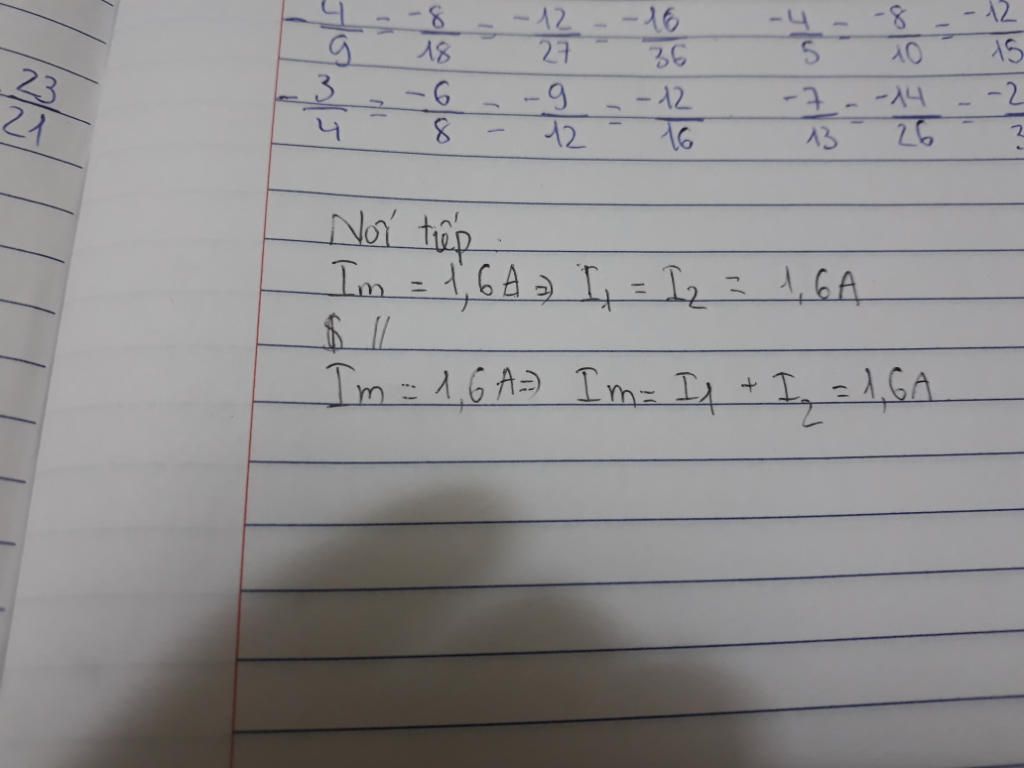 23/21
-4/9 = -8/18 = -12/27 = -16/36 -4/5 = -8/10 = -12/15
-3/4 = -6/8 = -9/12 = -12/16 -7/13 = -14/26 =
Nối tiếp.
Im = 1,6A => I1 = I2 = 1,6A
//
Im = 1,6A => Im = I1 + I2 = 1,6A